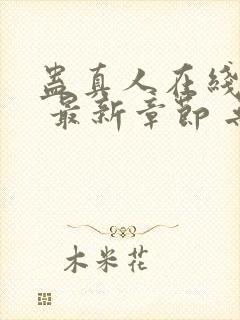 蛊真人在线
最新章节
木米花